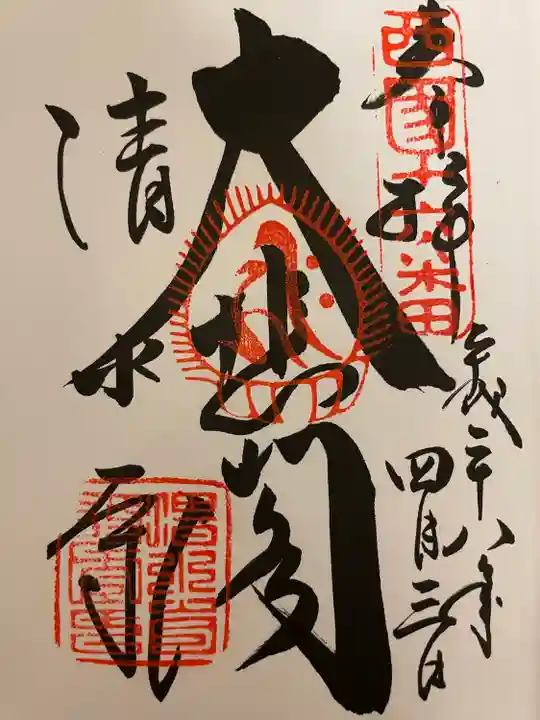 奉拝
西国十六番
平成二十八年
四月三日
大悲閣
清水寺